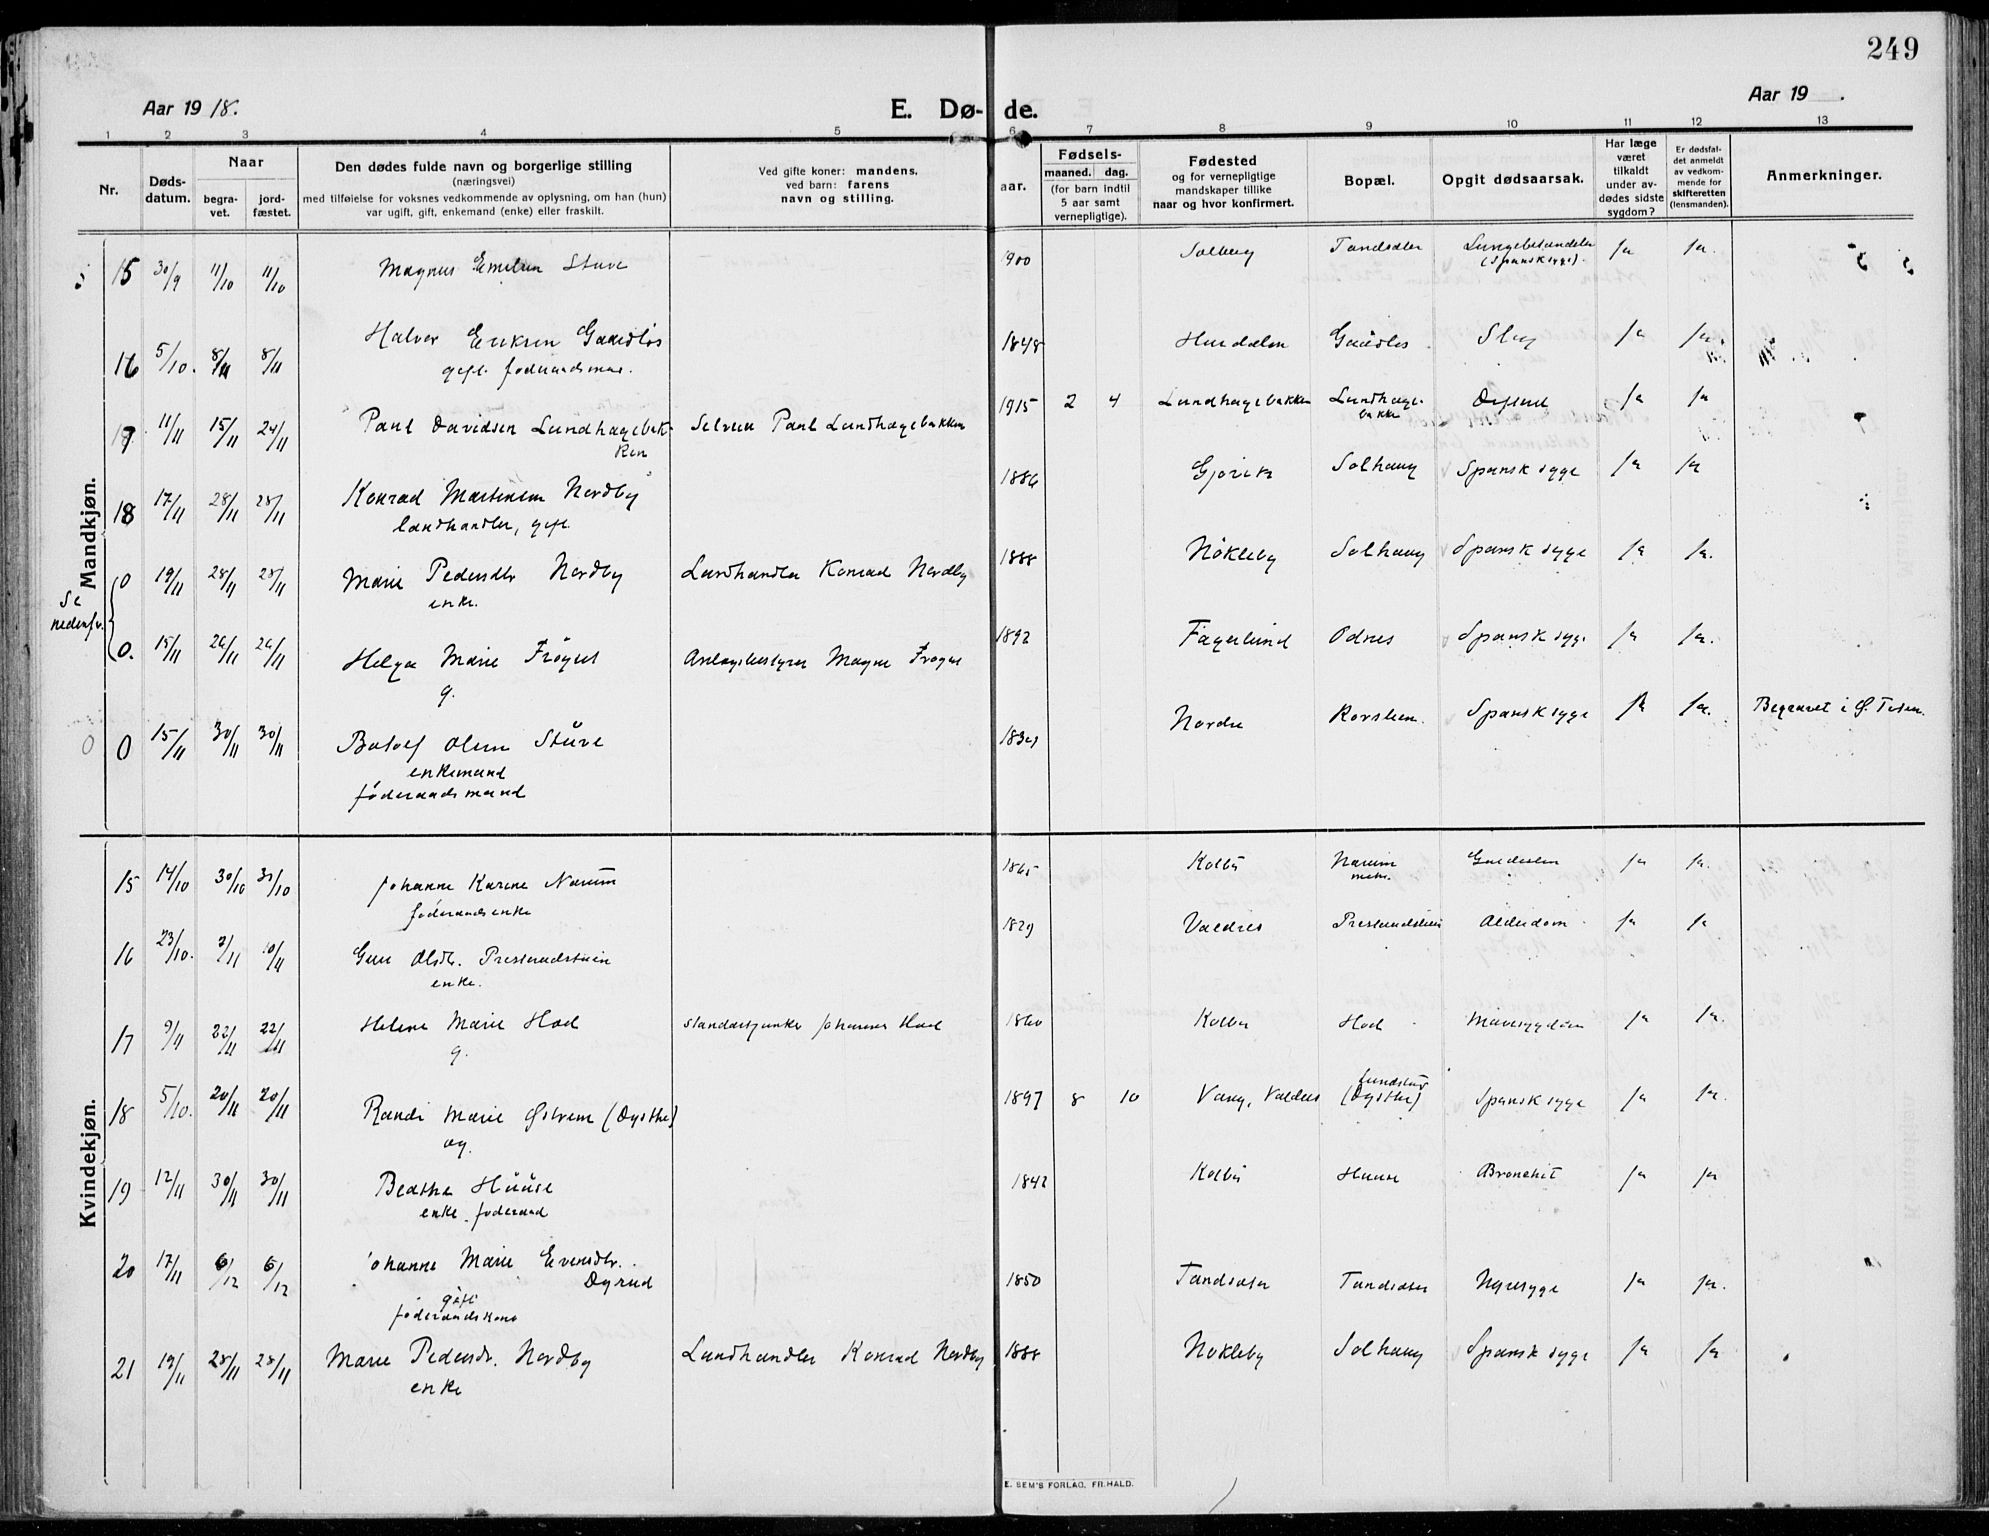 249
Aar 1918.
E. Dø-de.
Aar 19 .
1 2 3 4 5 6 7 8 9 10 11 12 13
Nr.
Døds-
datum.
Naar
begra-
vet.
jord-
fæstet.
Den dødes fulde navn og borgerlige stilling
(næringsvei)
med tilføielse for voksnes vedkommende av oplysning, om han (hun)
var ugift, gift, enkemand (enke) eller fraskilt.
Ved gifte koner: mandens.
ved barn: farens
navn og stilling.
Fødsels-
aar. maaned. dag.
(for barn indtil
5 aar samt
vernepligtige).
Fødested
og for vernepligtige
mandskaper tillike
naar og hvor konfirmert.
Bopæl.
Opgit dødsaarsak.
Har læge
været
tilkaldt
under av-
dødes sidste
sygdom?
Er dødsfal-
det anmeldt
av vedkom-
mende for
skifteretten
(lensmanden).
Anmerkninger.
Mandkjøn.
15 30/9 11/10 11/10 Magnus Emilsen Stuve 900 Solberg Tandsæter Lungebetændelse ja ja.
(Spansk syge).
16 5/10. 8/11 8/11 Halvor Eriksen Gaardløs 1848 Hurdalen Gaardløs Slag ja ja.
gift. føderaadsman.
17 11/11 15/11 24/11 Paul Davidsen Lundhagebak- Selveier Paul Lundhagebakken 1915 2 4 Lundhagebakken Lundhage- ja ja
ken
bakken
18 17/11 28/11 28/11 Konrad Martinsen Nordby 1886 Gjøvik Solhaug Spansk syge ja ja
landhandler, gift.
Se
nedenfor.
0 19/11 28/11 28/11 Marie Pedersdtr Nordby Landhandler Konrad Nordby 1888 Nøkleby Solhaug Spansk syge ja ja.
enke.
0. 15/11 26/11 26/11 Helga Marie Frøyse Anlægsbestyrer Magne 1892 Fagerlund Odnes Spansk syge ja ja.
g.
0 0 15/11 30/11 30/11 Olsen Stuve Nordre Spansk syge ja ja. Begravet i Ø. Toten.
enkemand
føderaadsmand
Kvindekjøn.
15 14/10 30/10 30/10 Johanne Karine Narum 1865 Kolbu Narum ja ja.
føderaadsenke
16 23/10. 2/11 10/11 Guri Olsdtr. 1829 Valdres Alderdom ja ja
enke.
17 9/11 22/11 22/11 Helene Marie Hoel Johannes Hoel 1860 Kolbu Hoel Mavesygdom ja ja.
g.
18 5/10. 20/11 20/11 Randi Marie Østrem (Dysthe) 1897 8 10 Vang, Valdres (Dysthe) Spansk syge ja ja.
ug.
19 12/11 30/11 30/11 Beathe Huuse 1842 Kolbu Huuse Bronchit ja ja
enke. føderaad
20 17/11 6/12 6/12 Johanne Marie Evensdtr. 1850 Tandsæter Tandsæter Nyresyge ja ja.
Dyrud
gift
føderaadskone
21 19/11 28/11 28/11 Marie Pedersdr. Nordby Landhandler Konrad Nordby 1888 Nøkleby Solhaug Spansk syge ja ja
enke
E. SEM'S FORLAG, FR.HALD.